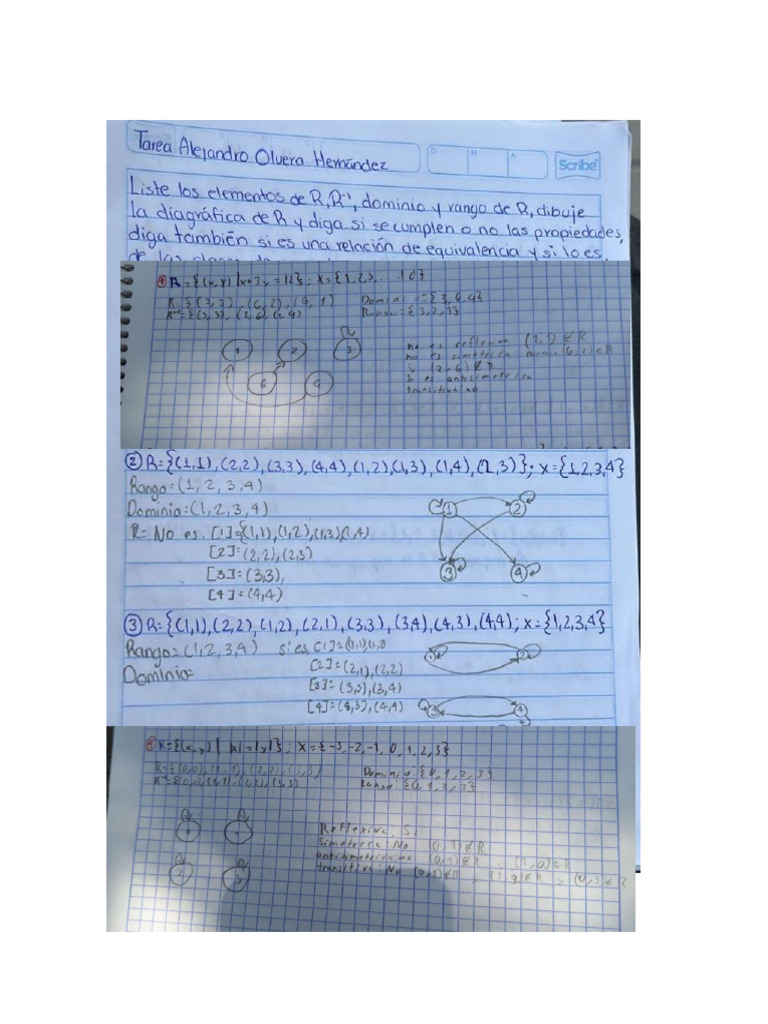 Tarea Alejandro Olvera Hernández
D M A
Scribe
Liste los elementos de R, R⁻¹, dominio y rango de R, dibuje
la diagráfica de R y diga si se cumplen o no las propiedades,
diga también si es una relación de equivalencia y si lo es,
① R = {(x,y) | x+3y = 12}; X = {1,2,3... 10}
R = {(3,3), (6,2), (9,1)
Dominio = {3,6,9}
R⁻¹ = {(3,3), (2,6), (1,9)
Rango = {3,2,1}
1 2 3
6 9
no es reflexiva (1,1) ∉ R
no es simetrica (6,2) ∈ R
y (2,6) ∉ R
Si es antisimetrica
transitiva no
② R={(1,1),(2,2),(3,3),(4,4),(1,2),(1,3),(1,4),(2,3)}; X={1,2,3,4}
Rango=(1,2,3,4)
Dominio=(1,2,3,4)
R= No es. [1]={(1,1),(1,2),(1,3)(1,4)
[2]=(2,2),(2,3)
[3]=(3,3),
[4]=(4,4)
1 2
3 4
③ R={(1,1),(2,2),(1,2),(2,1),(3,3),(3,4),(4,3),(4,4); X={1,2,3,4}
Rango=(1,2,3,4) si es, [1]=(1,1),(1,2)
[2]=(2,1),(2,2)
Dominio=
[3]=(3,3),(3,4)
[4]=(4,3),(4,4)
1 2
3 4
R={(x,y) | |x|=|y|}; X={-3,-2,-1,0,1,2,3}
R={(0,0),(1,1),(2,2),(3,3)
Dominio={0,1,2,3}
Rango={0,1,2,3}
2 3
Reflexiva. Si
Simetrica: No (0,1)∉R
antisimetrica no (0,1)∉R y (1,0)∉R
transitiva: No